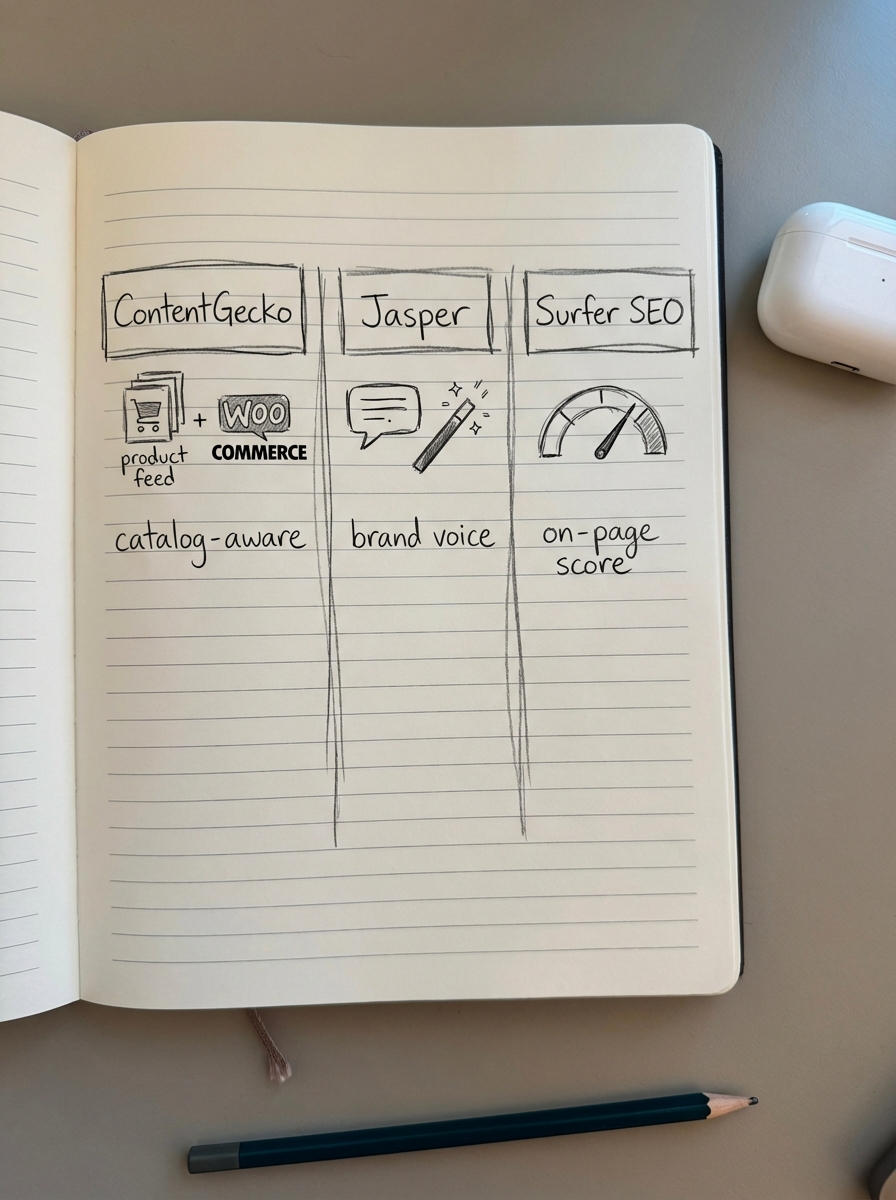 ContentGecko
Jasper
Surfer SEO
+
WOO
COMMERCE
product
feed
catalog-aware
brand voice
on-page
score